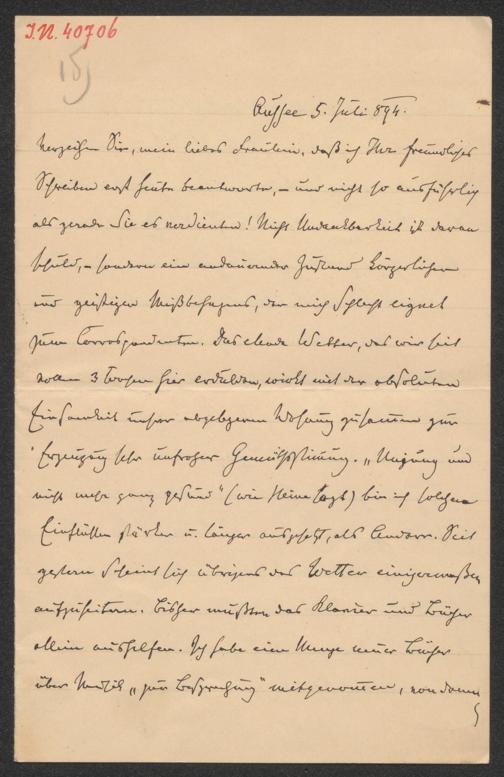 J.N. 40706
15)
Aussee 5. Juli 894.
Verzeihen Sie, mein liebes Fräulein, daß ich Ihr freundliches
Schreiben erst heute beantworte, – und nicht so ausführlich
als gerade Sie es verdienten! Nicht Undankbarkeit ist daran
schuld, – sondern ein andauernder Zustand körperlichen
und geistigen Mißbehagens, der mich schlecht eignet
zum Correspondenten. Das elende Wetter, das wir seit
vollen 3 Wochen hier erdulden, wirkt mit der absoluten
Einsamkeit unsrer abgelegenen Wohnung zusammen zur
Erzeugung sehr unfroher Gemüthsstimmung. „Unjung und
nicht mehr ganz gesund“ (wie Heine sagt) bin ich solchen
Einflüssen stärker u. länger ausgesetzt, als Andere. Seit
gestern scheint sich übrigens das Wetter einigermaßen
aufzuheitern. Bisher mußten das Klavier und Bücher
allein aushelfen. Ich habe eine Menge neuer Bücher
über Musik „zur Besprechung“ mitgenommen, von denen